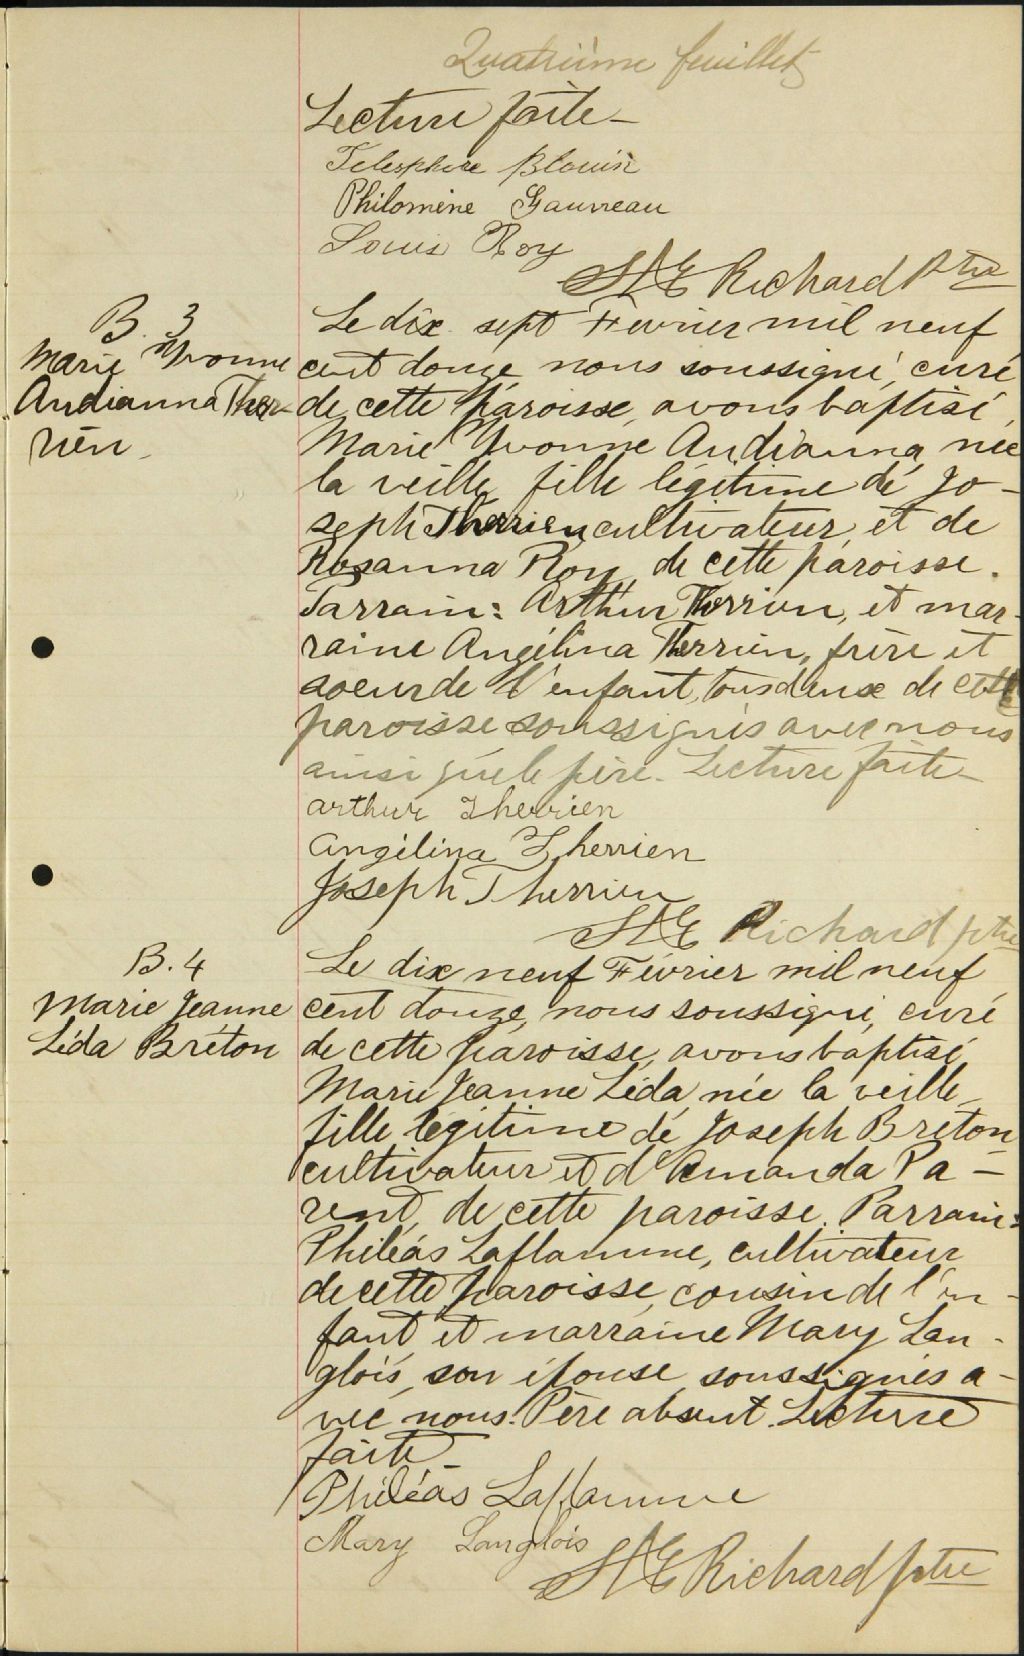 Quatrième feuillet
Lecture faite –
Telesphore Blouin
Philomène Gauvreau
Louis Roy
Richard Ptre
B. 3
Marie Yvonne
Andianna Ther-
rien
Le dix sept Février mil neuf
cent douze nous soussigné, curé
de cette paroisse, avons baptisé
Marie Yvonne Andianna, née
la veille, fille légitime de Jo-
seph Therrien cultivateur, et de
Rosanna Roy, de cette paroisse.
Parrain: Arthur Therrien, et mar-
raine Angélina Therrien, frère et
soeur de l'enfant, tous deux de cette
paroisse soussignés avec nous
ainsi que le père. Lecture faite –
arthur Therrien
Angélina Therrien
Joseph Therrien
Richard ptre
B. 4
Marie Jeanne
Léda Bréton
Le dix neuf Février mil neuf
cent douze, nous soussigné, curé
de cette paroisse, avons baptisé
Marie Jeanne Léda, née la veille,
fille légitime de Joseph Bréton
cultivateur et d'Amanda Pa-
rent, de cette paroisse. Parrain:
Philéas Laflamme, cultivateur
de cette paroisse, cousin de l'en-
fant, et marraine Mary Lan-
glois, son épouse soussignés a-
vec nous. Père absent. Lecture
faite –
Philéas Laflamme
Mary Langlois
Richard ptre